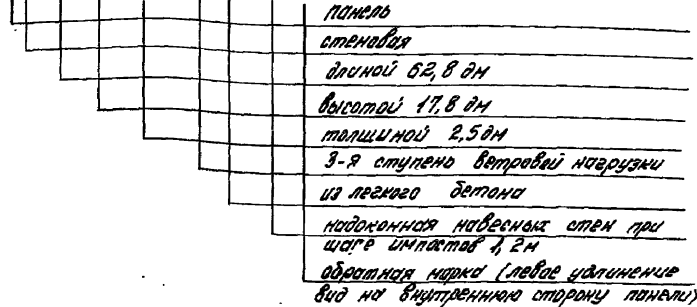 панель
стеновая
длиной 62,8 дм
высотой 17,8 дм
толщиной 2,5 дм
3-я ступень ветровой нагрузки
из легкого бетона
надоконная навесных стен при
шаге импостов 1,2 м
обратная марка (левое удлинение
вид на внутреннюю сторону панели)